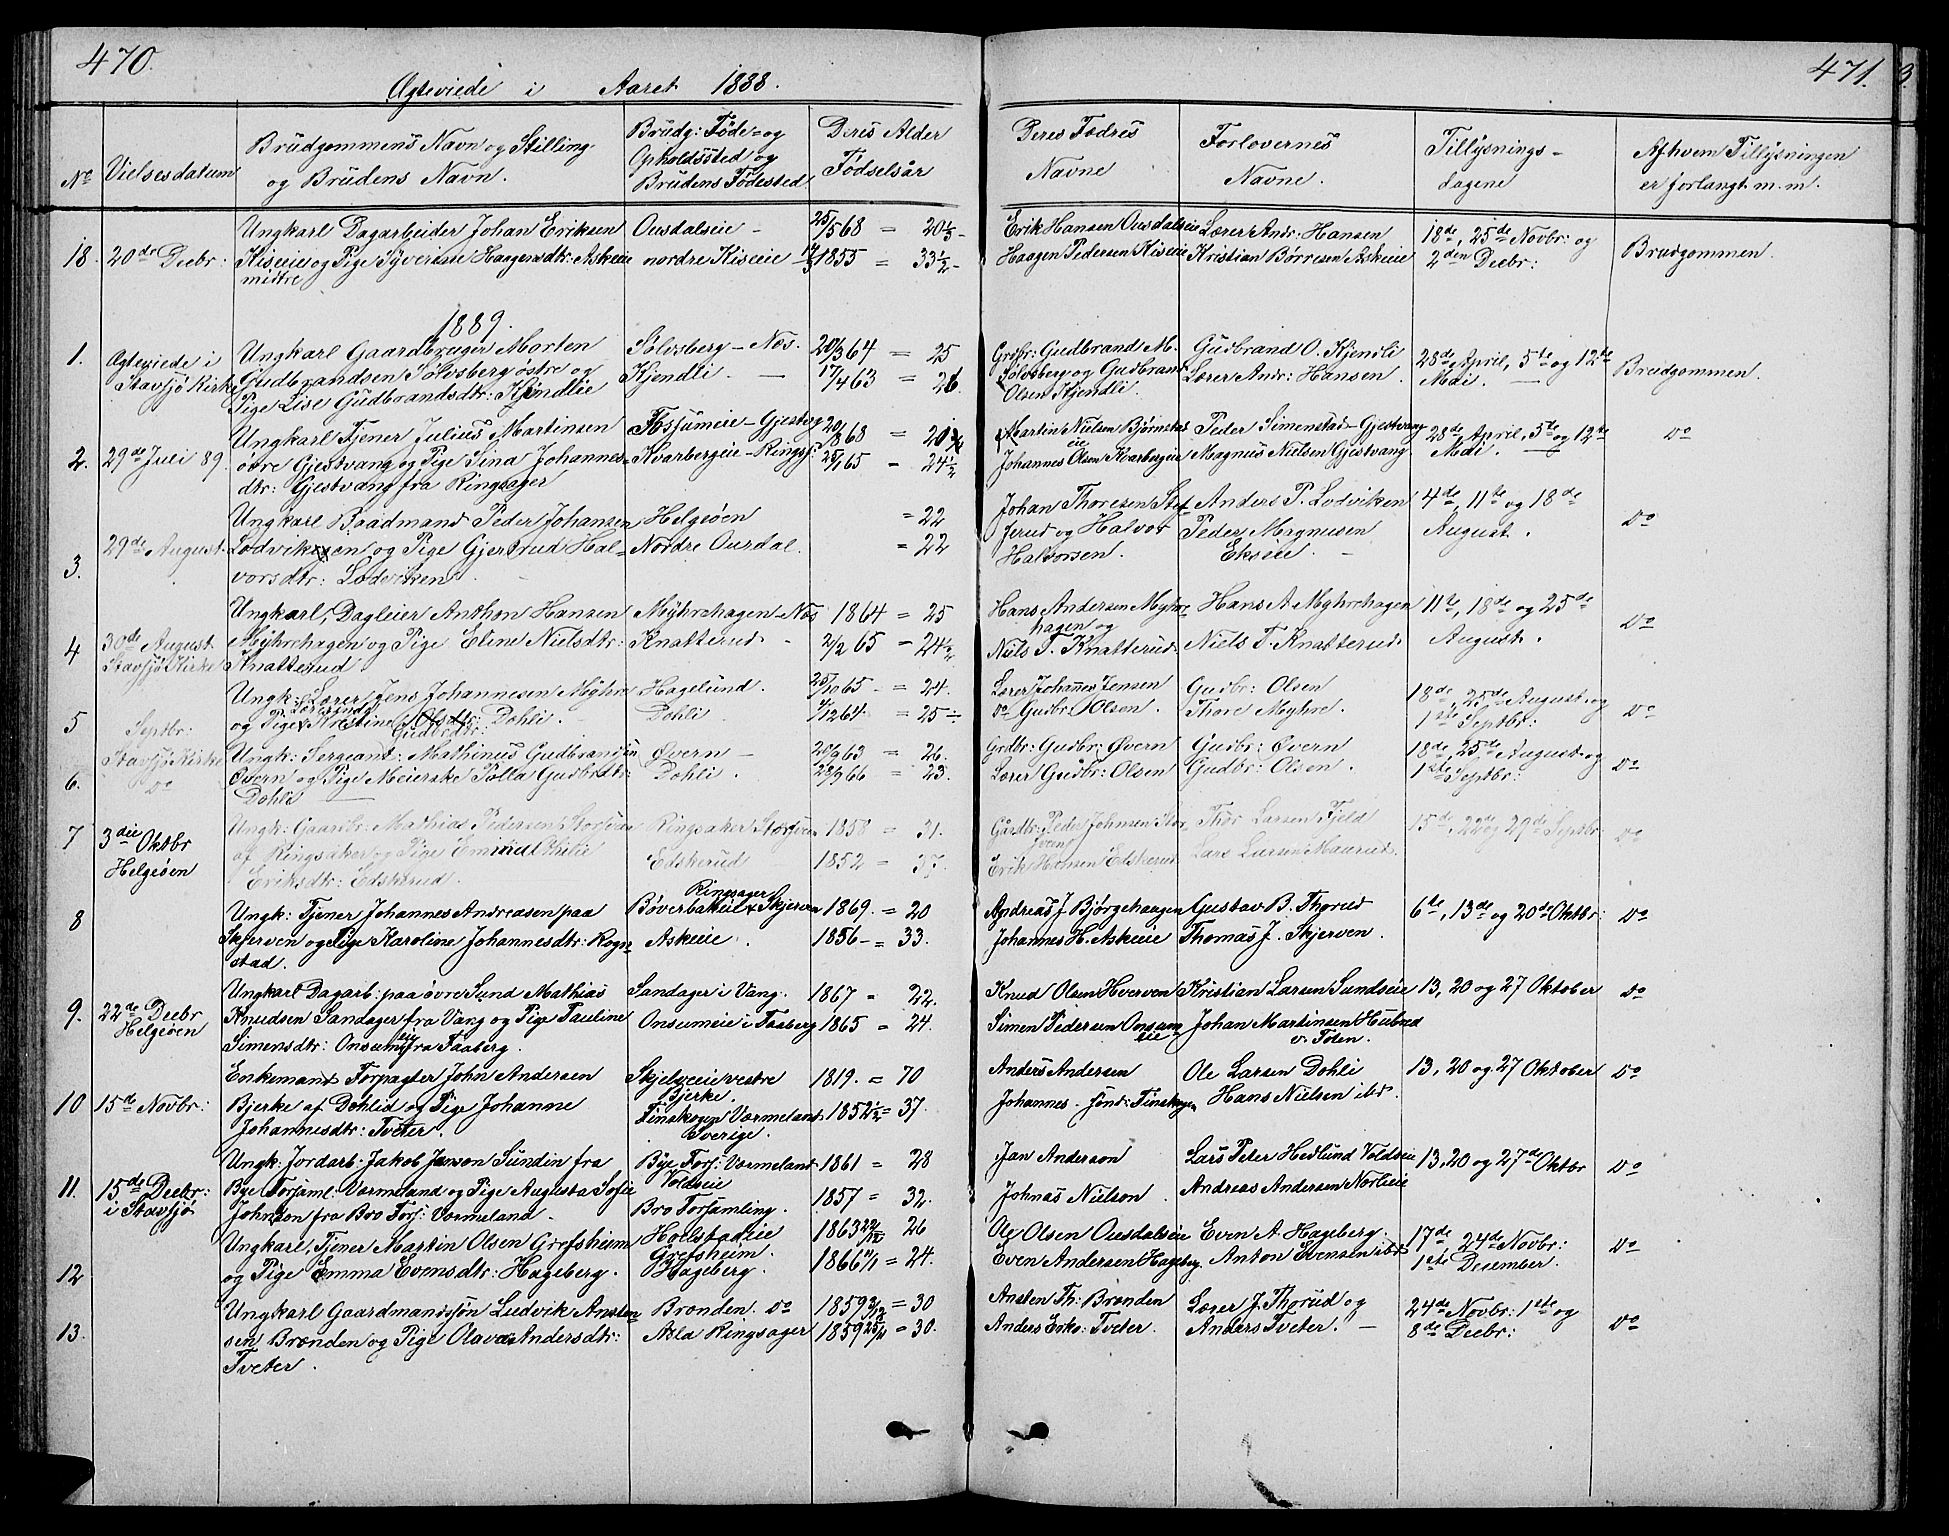 470.
Ægteviede i Aaret 1888.
No
Vielsesdatum
Brudgommens Navn og Stilling
og Brudens Navn.
Brudg: Føde= og
Opholdssted og
Brudens Fødested
Deres Alder
Fødselsår
18. 20de Decbr:
Ungkarl Dagarbeider Johan Eriksen
Kiseie og Pige Syverine Haagensdtr: Askeie
midtre
Ousdalseie –
nordre Kiseie
25/5 68 = 20½ –
1855 = 33½ –
1889.
1. Ægteviede i
Stavsjø Kirke
Ungkarl Gaardbruger Morten
Gudbrandsen Sølvsberg østre og
Pige Lise Gudbrandsdtr: Kjendlie
Sølvsberg – Næs.
Kjendli. —
20/3 64 = 25
17/4 63 = 26.
2. 29de Juli 89.
Ungkarl Tjener Julius Martinsen
øvre Gjestvang og Pige Sina Johannes=
dtr: Gjestvang fra Ringsager
Fossumeie – Gjestvg
Kvarbergeie – Ringsj:
20/8 68 =
65 – 24½
3. 29de August.
Ungkarl Baadmand Peder Johansen
Lodviken og Pige Gjertrud Hal=
vorsdtr: Lodviken.
Helgeøen
Nordre Ourdal.
= 22
= 22
4 30de August
Stavsjø Kirke
Ungkarl, Dagleier Anthon Hansen
Myhrehagen og Pige Eline Nielsdtr:
Knatterud
Myhrehagen – Næs
Knatterud. –
1864 = 25
2/2 65 – = 24½
5 Septbr:
Stavsjø Kirke
Ungk: Lærer Jens Johannesen Myhre
og Pige Lærerinde Kristine Olsdtr: Gudbrdtr: Dohli.
Hagelund.
Dohli.
25/10 65 – = 24.
4/12 64 = 25 –
6. Do
Ungk: Sergeant: Mathinus Gudbrandsen
Øvern og Pige Meierske Polla Gudbrdtr:
Dohli —
Øvern –
Dohli.
63 = 26.
66 = 23.
7 3die Oktbr
Helgeøen
Ungk: Gaardbr: Mathias Pedersen Storsveen
af Ringsaker og Pige
Eriksdtr: Edskerud.
Ringsaker Storsveen
Edskerud
1858 = 31.
1852 = 37.
8
Ungk: Tjener Johannes Andreasen paa
Skjerven og Pige Karoline Johannesdtr: Rog=
stad.
Ringsager
Bøverbakeie Skjerven
Askeie.
1869. = 20
1856 – = 33.
9. 22de Decbr
Helgeøen
Ungkarl Dagarb: paa øvre Sund Mathias
Knudsen Sandager fra Vang og Pige Pauline
Simensdtr: Onsumeie fra Faaberg.
Sandager i Vang.
Onsumeie i Faaberg
1867 = 22.
1865 = 24.
10 15de Novbr:
Enkemand Forpagter John Andersen
Bjerke af Dohlid og Pige Johanne
Johannesdtr: Tveter.
Skjelveie vestre
Bjerke.
Finskogen Værmeland
Sverige.
1819. = 70
1852½ = 37.
11. 15de Decbr:
i Stavsjø
Ungk: Jordarb: Jakob Janson Sundin fra
Bye Forsaml: Værmeland og Pige Augusta Sofie
Johnson fra Bro Fors: Værmeland.
Bye Fors: Værmeland
Voldseie
Bro Forsamling.
1861 = 28
1857 = 32.
12
Ungkarl, Tjener Martin Olsen Grefsheim
og Pige Emma Evensdtr: Hageberg.
Hoelstadeie
Grefsheim.
Hageberg.
1863 22/12 = 26
1866 11/1 = 24.
13.
Ungkarl Gaardmandssøn Ludvik Ansten
sen Brænden og Pige Olava Andersdtr:
Tveter.
Brænden. Do
Asla Ringsager
1859 2/12 = 30
1859 25/11 = 30.
471.
Deres Fædres
Navne
Forlovernes
Navne.
Tillysnings –
dagene
Af hvem Tillysningen
er forlangt m. m.
Erik Hansen Ousdalseie
Haagen Pedersen Kiseie
Lærer Andr: Hansen
Kristian Børresen Askeie
18de, 25de Novbr: og
2den Decbr:
Brudgommen.
Grdbr: Gudbrand M.
Sølvsberg og Gudbrand
Olsen Kjendli.
Gudbrand O. Kjendli
Lærer Andr: Hansen.
28de April, 5te og 12te
Mai. —
Brudgommen.
Martin Nielsen Bjørnstad
eie
Johannes Olsen Kvarbergeie
Peder Simenstad – Gjestvang
Magnus Nielsen Gjestvang
28de April, 5te og 12te
Mai.
Do
Johan Thoresen Stef=
ferud og Halvor
Halvorsen.
Anders P. Lodviken
Peder Magnusen
Ekseie. –
4de, 11te og 18de
August.
Do
Hans Andersen Myhre
hagen og
Niels T. Knatterud
Hans A Myhrehagen
Niels T. Knatterud.
11te, 18de og 25de
August.
Do
Lærer Johannes Jensen
Do Gudbr: Olsen.
Gudbr: Olsen
Thore Myhre.
18de, 25de August og
1ste Septbr:
Do
Grdbr: Gudbr: Øvern
Lærer Gudbr: Olsen
Gudbr: Øvern
Gudbr: Olsen.
18de, 25de August og
1ste Septbr:
Do
Gårdbr: Peder Johnsen Stor
sveen
Erik Hansen Edskerud
Thor Larsen Fjeld
Lars Larsen Maurud.
15de, 22de og 29de Septbr
Do
Andreas J Bjørgehaugen
Johannes H. Askeie
Gustav B. Thorud
Thomas J. Skjerven.
6te, 13de og 20de Oktbr:
Do
Knud Olsen Hverven
Simen Pedersen Onsum
eie
Kristian Larsen Sundseie
Johan Martinsen Hubred
v. Toten.
13, 20 og 27 Oktober
Do
Anders Andersen
Johannes – Jønd: Finskogen
Ole Larsen Dohli
Hans Nielsen ibd:
13, 20 og 27 Oktober
Do
Jan Anderson
Johnas Nielson.
Lars Peter Hedlund Voldseie
Andreas Andersen Norlieie
13, 20 og 27de Oktbr
Do
Ole Olsen Ousdalseie
Even Andersen Hageberg.
Even A. Hageberg.
Anton Evensen ibd
17de, 24de Novbr:
1ste Desember.
Do
Ansten Th: Brænden
Anders Erks: Tveter.
Lærer J. Thorud og
Anders Tveter. –
24de Novbr: 1ste og
8de Decbr:
Do